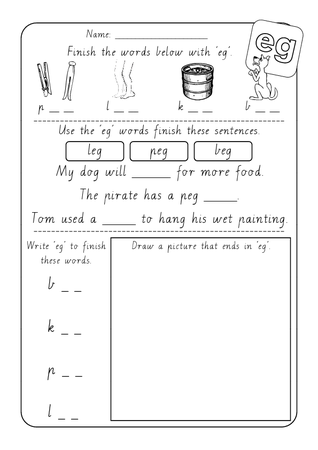 Name: ____________________
eg
Finish the words below with 'eg'.
p __ __ l __ __ k __ __ b __ __
Use the 'eg' words finish these sentences.
leg peg beg
My dog will ______ for more food.
The pirate has a peg _____.
Tom used a _____ to hang his wet painting.
Write 'eg' to finish
these words.
b _ _
k _ _
p _ _
l _ _
Draw a picture that ends in 'eg'.